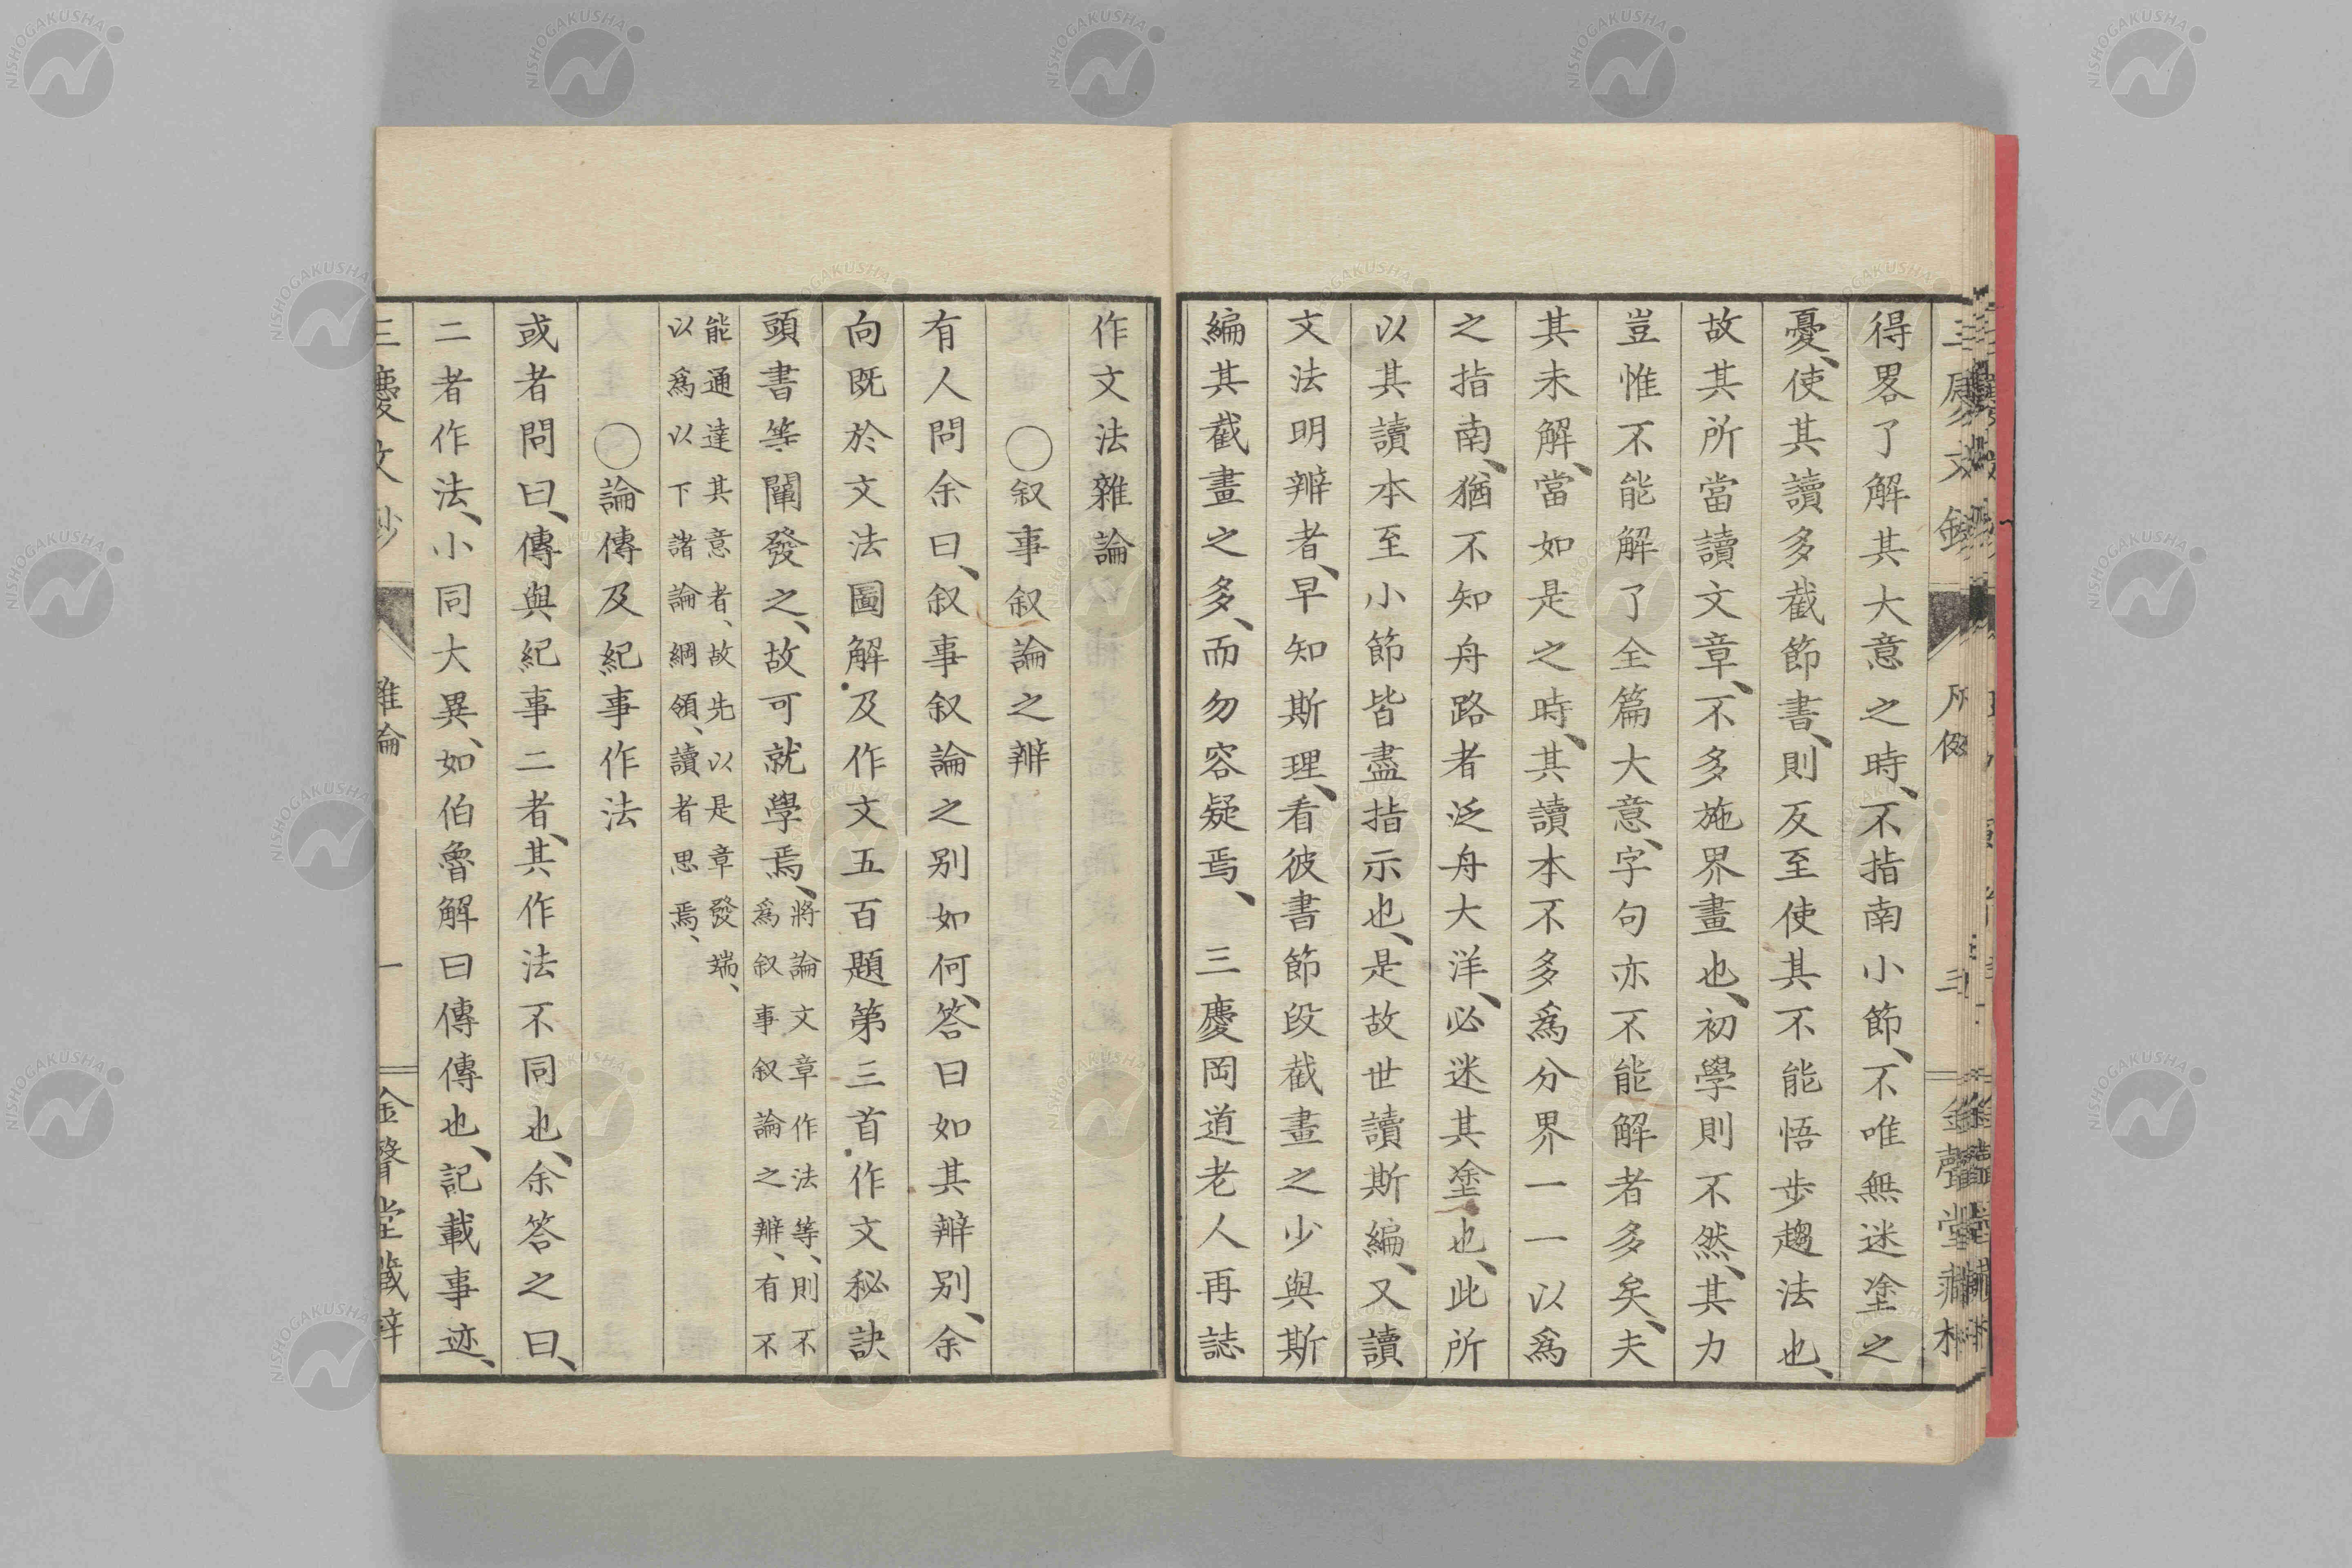 得畧了解其大意之時、不指南小節、不唯無迷塗之
憂、使其讀多截節書、則反至使其不能悟步趨法也、
故其所當讀文章、不多施界畫也、初學則不然、其力
豈惟不能解了全篇大意、字句亦不能解者多矣、夫
其未解、當如是之時、其讀本不多爲分界一一以爲
之指南、猶不知舟路者泛舟大洋、必迷其塗也、此所
以其讀本至小節皆盡指示也、是故世讀斯編、又讀
文法明辨者、早知斯理、看彼書節段截畫之少與斯
編其截畫之多、而勿容疑焉、 三慶岡道老人再誌
作文法雜論
○叙事叙論之辨
有人問余曰、叙事叙論之別如何、答曰如其辨別、余
向既於文法圖解及作文五百題第三首作文秘訣
頭書等闡發之、故可就學焉、將論文章作法等、則不
爲叙事叙論之辨、有不
能通達其意者、故先以是章發端、
以爲以下諸論綱領、讀者思焉、
○論傳及紀事作法
或者問曰、傳與紀事二者、其作法不同也、余答之曰、
二者作法、小同大異、如伯魯解曰傳傳也、記載事迹、
三慶文鈔 雜論 一 金聲堂藏梓
NISHOGAKUSHA